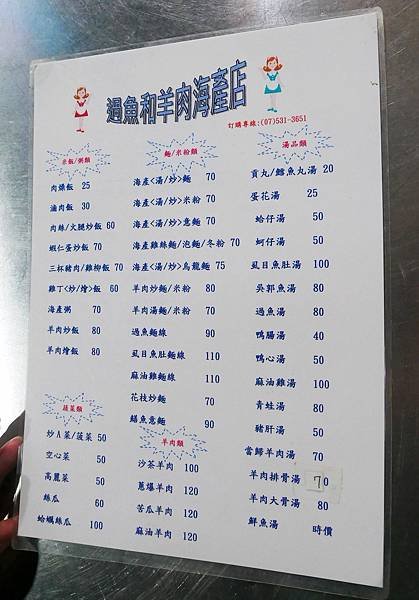 過魚和羊肉海產店
訂購專線:(07)531-3651
米飯/粥類
肉燥飯 25
滷肉飯 30
肉絲/火腿炒飯 60
蝦仁蛋炒飯 70
三杯豬肉/雞柳飯 70
雞丁<炒/燴>飯 60
海產粥 70
羊肉炒飯 80
羊肉燴飯 80
蔬菜類
炒A菜/菠菜 50
空心菜 50
高麗菜 50
絲瓜 60
蛤蠣絲瓜 100
麵/米粉類
海產<湯/炒>麵 70
海產<湯/炒>米粉 70
海產<湯/炒>意麵 70
海產雞絲麵/泡麵/冬粉 70
海產<湯/炒>烏龍麵 75
羊肉炒麵/米粉 80
羊肉湯麵/米粉 70
過魚麵線 90
虱目魚肚麵線 110
麻油雞麵線 110
花枝炒麵 70
鱔魚意麵 90
羊肉類
沙茶羊肉 100
蔥爆羊肉 120
苦瓜羊肉 120
麻油羊肉 120
湯品類
貢丸/鱈魚丸湯 20
蛋花湯 25
蛤仔湯 50
蚵仔湯 50
虱目魚肚湯 100
吳郭魚湯 80
過魚湯 80
鴨腸湯 40
鴨心湯 50
麻油雞湯 100
青蛙湯 80
豬肝湯 50
當歸羊肉湯 70
羊肉排骨湯 70
羊肉大骨湯 80
鮮魚湯 時價